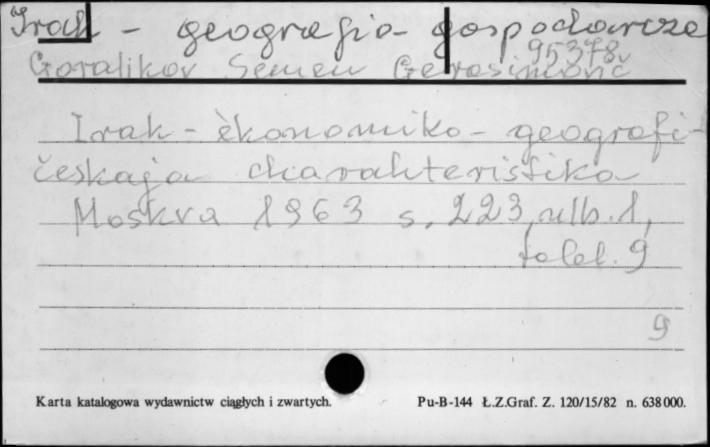 Irak - geografia gospodarcza
95378
Goralikov Semen Gerasimovič
Irak - èkonomiko-geografi-
českaja charakteristika
Moskva 1963 s. 223, ulb. 1,
tabl. 9
9
Karta katalogowa wydawnictw ciągłych i zwartych. Pu-B-144 Ł.Z.Graf. Z. 120/15/82 n. 638000.